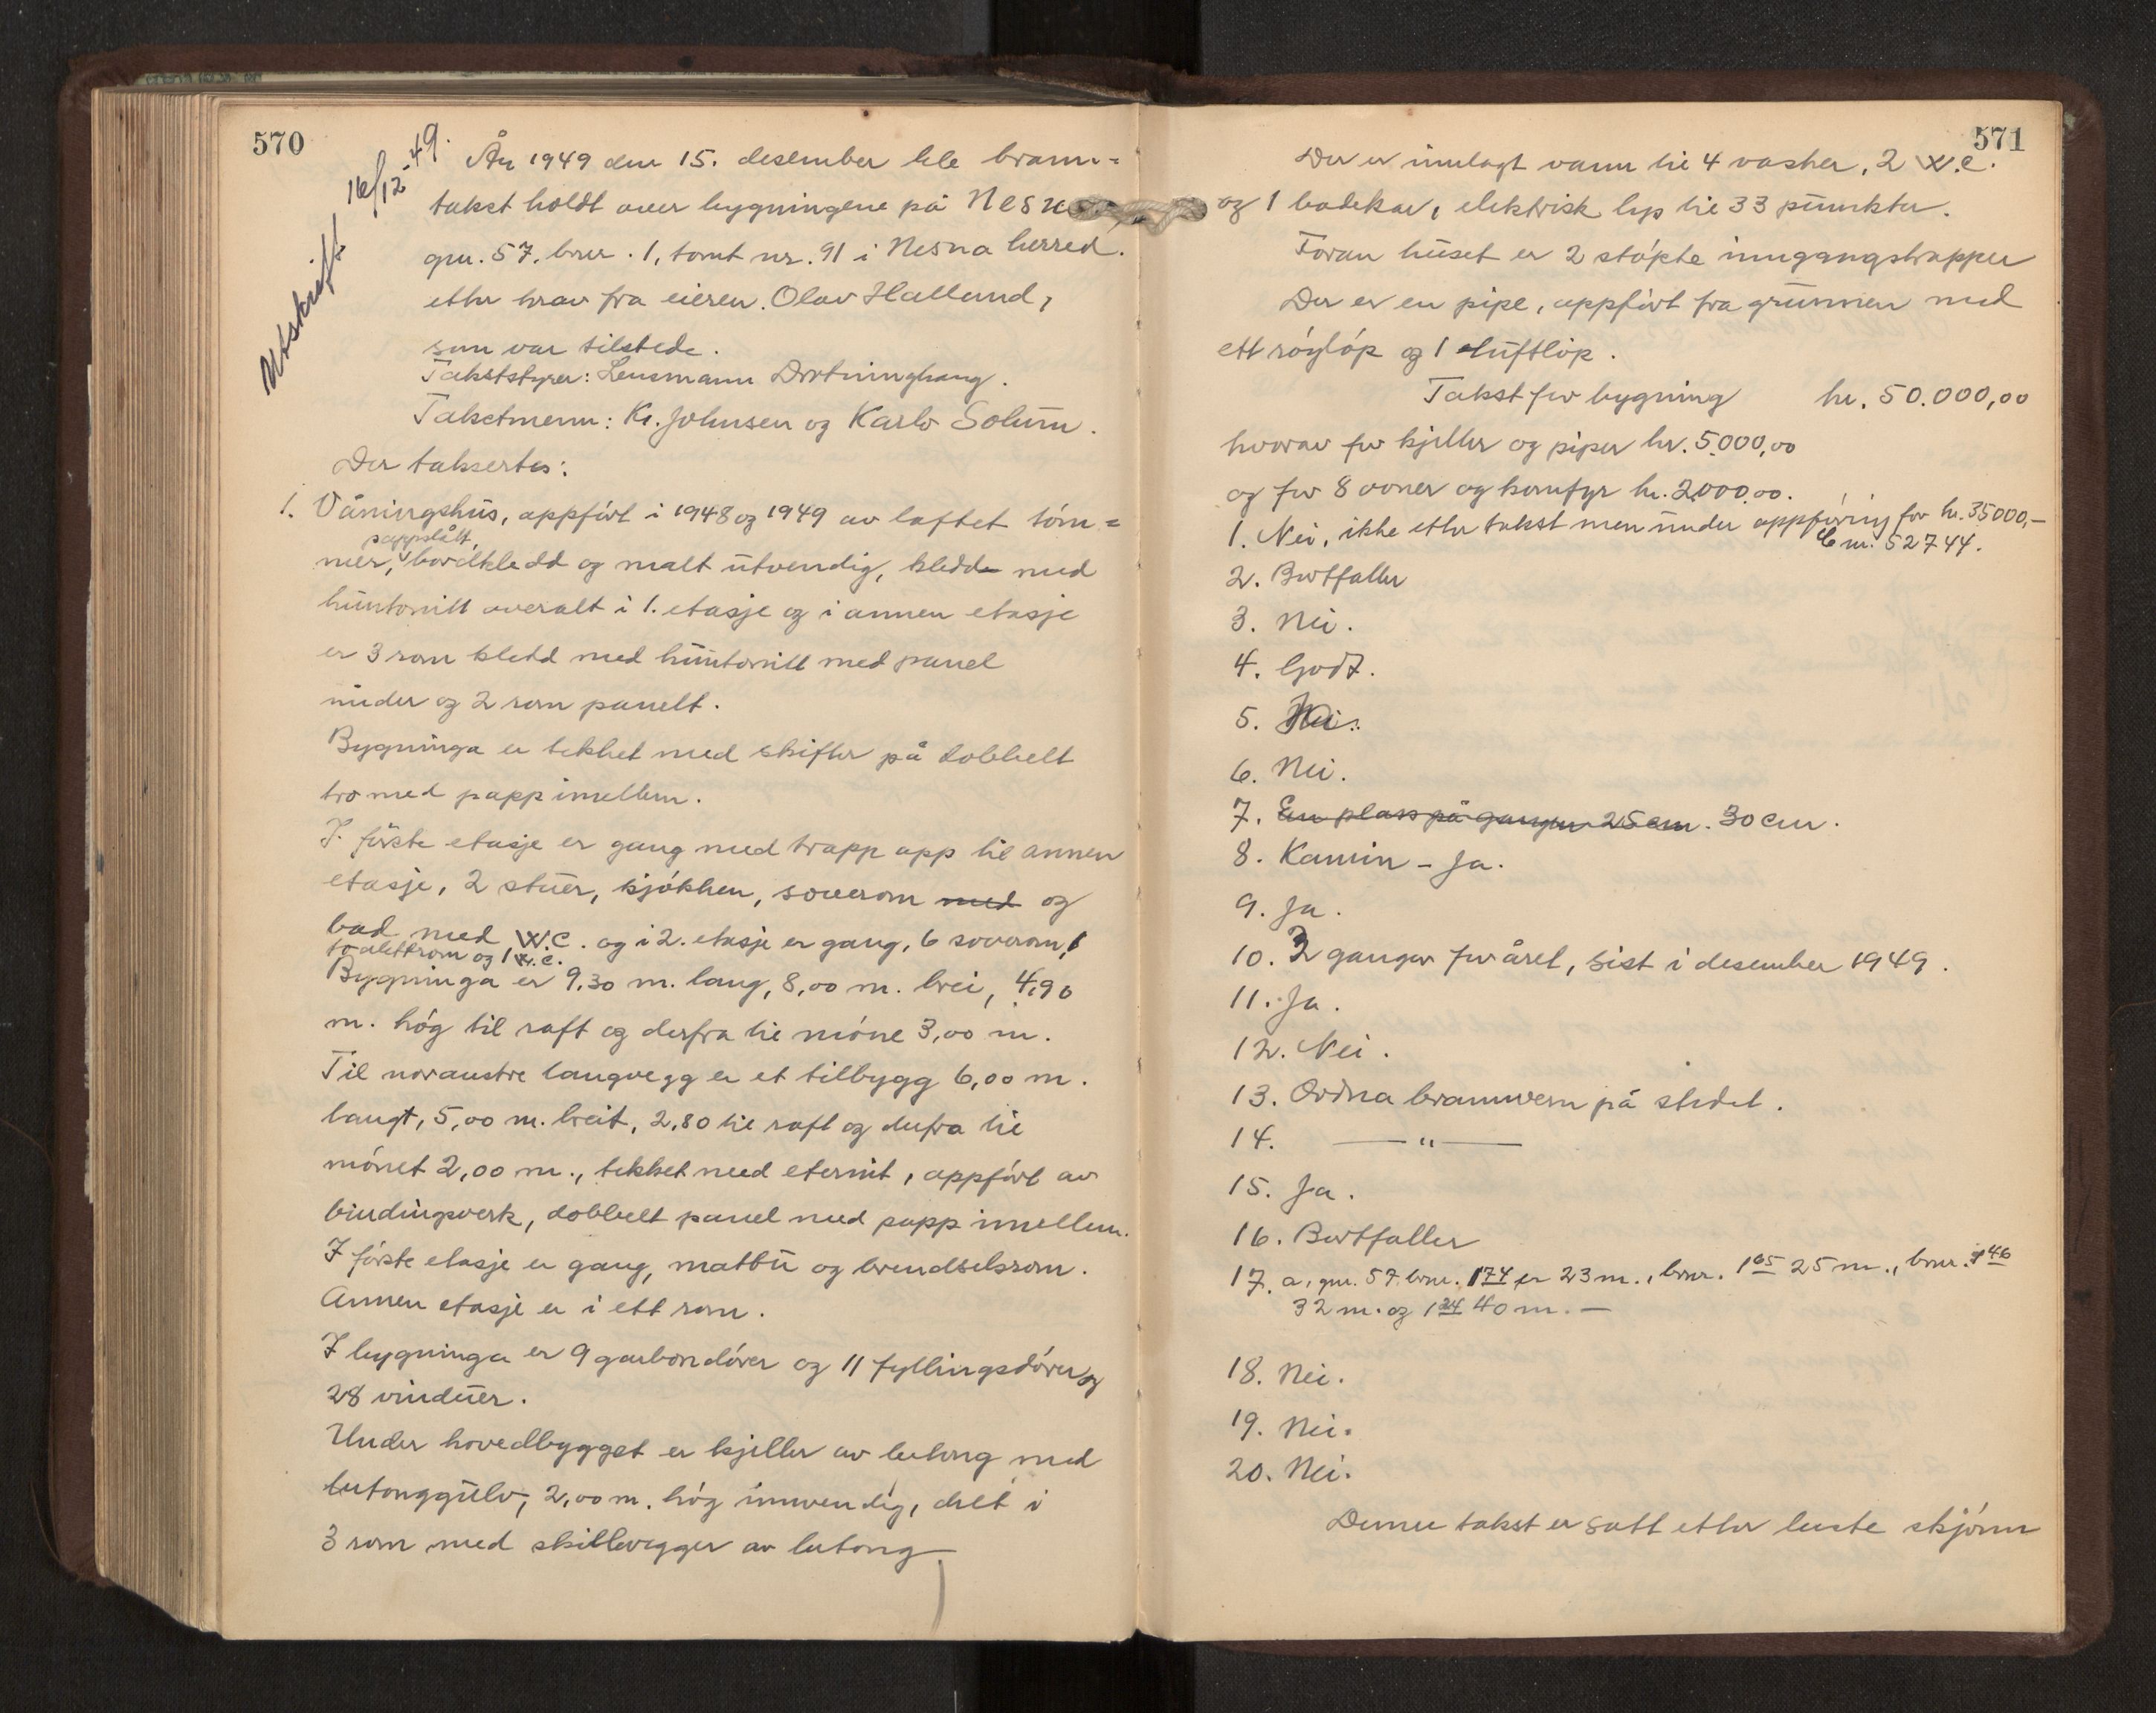 570
Utskrift 16/12-49.
År 1949 den 15. desember ble brann-
takst holdt over bygningene på Nesn
gnr. 57, bnr. 1, tomt nr. 91 i Nesna herred.
etter krav fra eieren Olav Halland,
som var tilstede.
Takststyrer: Lensmann Drotninghaug.
Takstmenn: Kr. Johnsen og Karlo Solum.
Der takserte:
1. Våningshus, oppført i 1948 og 1949 av laftet töm-
pappslått,
mer, bordkledd og malt utvendig, kledd med
huntonitt overalt i 1. etasje og i annen etasje
er 3 rom kledd med huntonitt med panel
under og 2 rom panelt.
Bygninga er tekket med skifter på dobbelt
tro med papp imellem.
I förste etasje er gang med trapp opp til annen
etasje, 2 stuer, kjökken, soverom med og
bad med W.C. og i 2. etasje er gang, 6 soverom, 1
toalettrom og 1 W.C.
Bygninga er 9,30 m. lang, 8,00 m. brei, 4,90
m. hög til raft og derfra til möne 3,00 m.
Til noraustre langvegg er et tilbygg 6,00 m.
langt, 5,00 m. breit, 2,80 til raft og derfra til
mönet 2,00 m., tekket med eternit, oppfört av
bindingsverk, dobbelt panel med papp imellem.
I förste etasje er gang, matbu og brendselsrom.
Annen etasje er i ett rom.
I bygninga er 9 garbondörer og 11 fyllingsdörer og
28 vinduer.
Under hovedbygget er kjeller av betong med
betonggulv, 2,00 m. hög innvendig, delt i
3 rom med skillevegger av betong
571
Der er innlagt vann til 4 vasker, 2 W.C.
og 1 badekar, elektrisk lys til 33 punkter.
Foran huset er 2 stöpte inngangstrapper
Der er en pipe, oppfört fra grunnen med
ett röyklöp og 1 luftlöp.
Takst for bygning kr. 50.000,00
hvorav for kjeller og piper kr. 5.000,00
og for 8 ovner og komfyr kr. 2.000,00.
1. Nei, ikke etter takst men under oppföring for kr. 35000,-
C nr. 52744.
2. Bortfaller
3. Nei.
4. Godt.
5.
6. Nei.
7. En plass på gangen 25 cm. 30 cm.
8. Kamin - Ja.
9. Ja.
10. 2 ganger for året, sist i desember 1949.
11. Ja.
12. Nei.
13. Ordna brannvern på stedet.
14. —"—
15. Ja.
16. Bortfaller
17. a, gnr. 57 bnr. 174 er 23 m., bnr. 165 25 m., bnr. 146
32 m. og 124 40 m. —
18. Nei.
19. Nei.
20. Nei.
Denne takst er satt etter beste skjönn